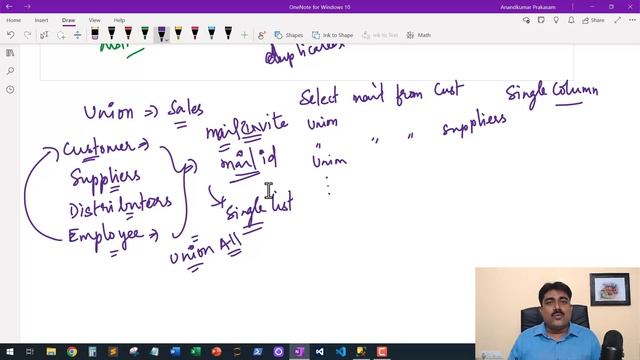 OneNote for Windows 10
Anandkumar Prakasam
Home Insert Draw View Help
Shapes Ink to Shape Ink to Text Math
duplicates
Union => Sales
Select mail from Cust
Single Column
mail Invite
Union
Customer =>
" " " suppliers
mail id
Union
Suppliers
Distributors
Single list
Employee =>
Union All